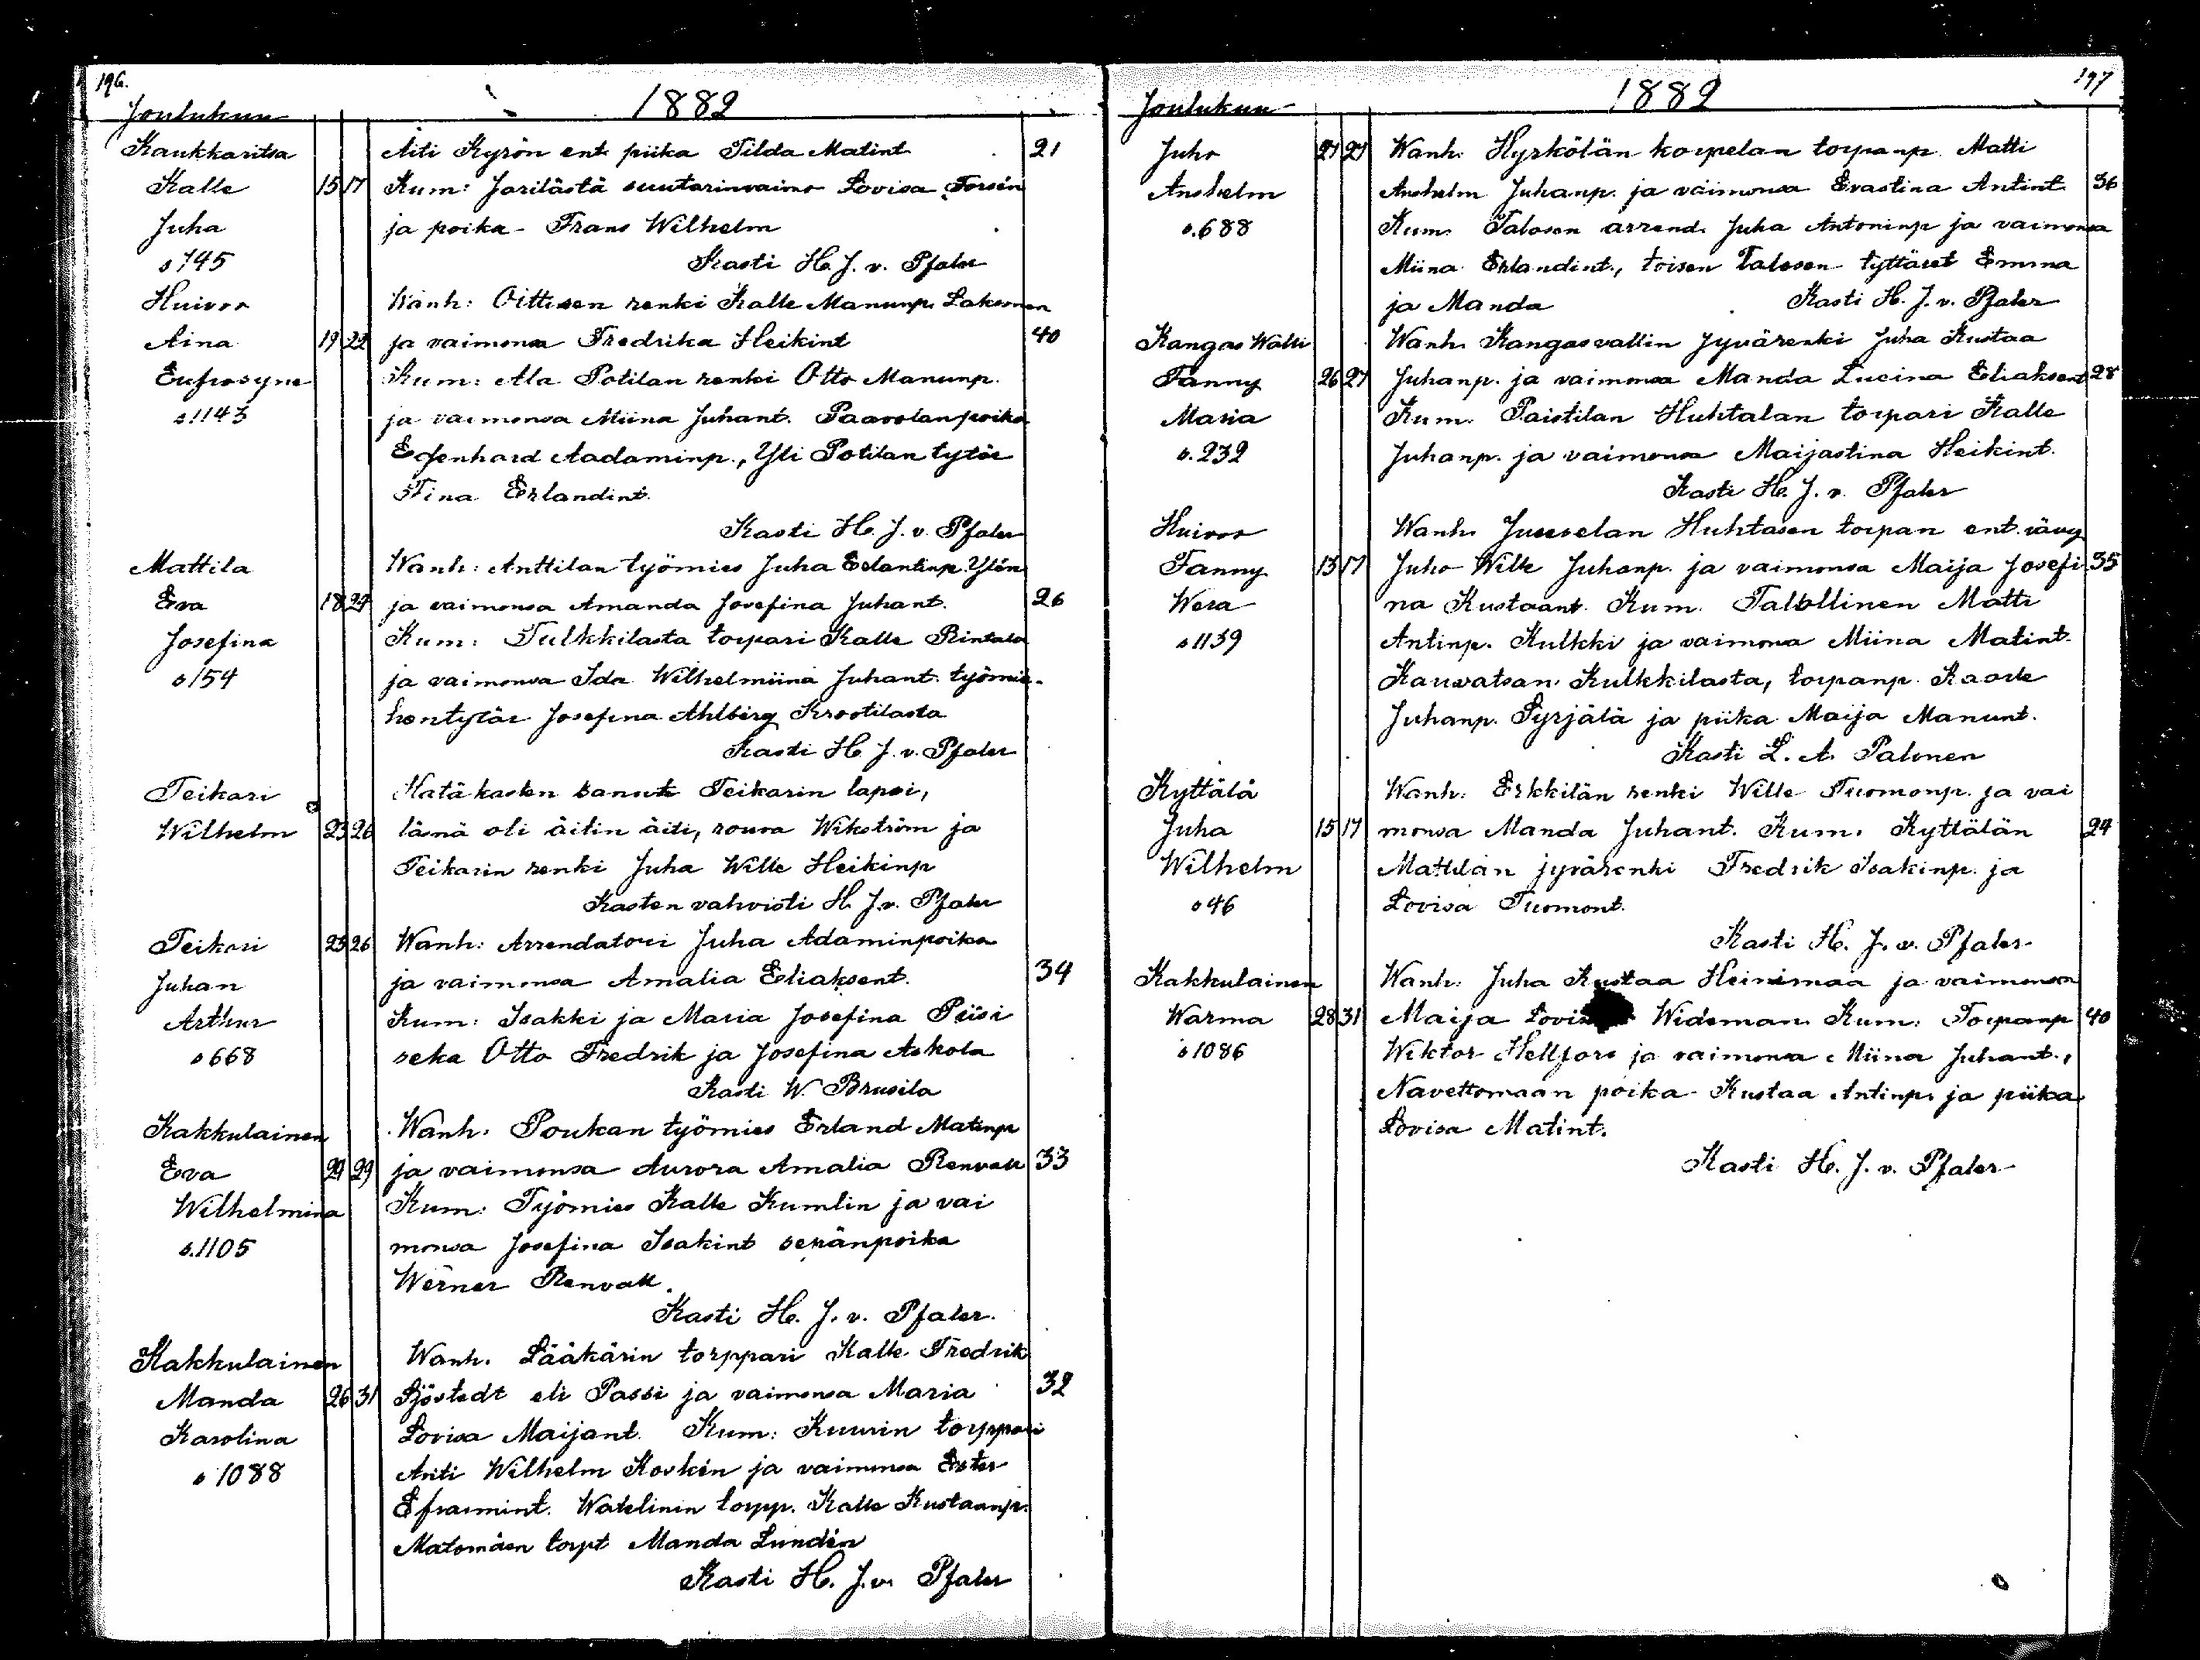 196.
Joulukuu 1882
Kaukkaritsa Äiti Kyrön ent piika Tilda Matint 21
Kalle 15 17 Kum: Jarilästä suutarinvaimo Lovisa Forsén
Juha ja poika Frans Wilhelm
s 745 Kasti H. J. v. Pfaler
Huivoo Wanh: Oittisen renki Kalle Manunp. Laksonen
Aina 19 22 ja vaimonsa Fredrika Heikint 40
Eufrosyne Kum: Ala Potilan renki Otto Manunp.
s 1143 ja vaimonsa Miina Juhant. Paavolanpoika
Egenhard Aadaminp., Yli Potilan tytär
Stina Erlandint.
Kasti H. J. v. Pfaler
Mattila Wanh: Anttilan työmies Juha Erlantinp. Ylén
Eva 18 24 ja vaimonsa Amanda Josefina Juhant. 26
Josefina Kum: Tulkkilasta torpari Kalle Rintala
s 154 ja vaimonsa Ida Wilhelmiina Juhant. työmie-
hentytär Josefina Ahlberg Krootilasta
Kasti H. J. v. Pfaler
Teikari Hätäkasten sanut Teikarin lapsi,
Wilhelm 23 26 läsnä oli äitin äiti, rouva Wikström ja
Teikarin renki Juha Wille Heikinp
Kasten vahvisti H. J. v. Pfaler
Teikari 23 26 Wanh: Arrendatori Juha Adaminpoika
Juhan ja vaimonsa Amalia Eliaksent. 34
Arthur Kum: Isakki ja Maria Josefina Piisi
s 668 seka Otto Fredrik ja Josefina Askola
Kasti W. Brusila
Kakkulainen Wanh: Poukan työmies Erland Matinp
Eva 24 29 ja vaimonsa Aurora Amalia Renvall 33
Wilhelmina Kum: Työmies Kalle Kumlin ja vai
s. 1105 monsa Josefina Isakint sepänpoika
Werner Renvall.
Kasti H. J. v. Pfaler.
Kakkulainen Wanh. Lääkärin torppari Kalle Fredrik
Manda 26 31 Sjöstedt eli Passi ja vaimonsa Maria 32
Karolina Lovisa Maijant. Kum: Kuurin torppari
s 1088 Antti Wilhelm Korkén ja vaimonsa Ester
Efraimint. Watelinin torpp. Kalle Kustaanp.
Matomäen torpt Manda Lundén
Kasti H. J. v. Pfaler
197
Joulukuu 1882
Juho 21 27 Wanh. Hyrkölän korpelan torpanp. Matti
Anshelm Anshelm Juhanp. ja vaimonsa Evastina Antint. 36
s. 688 Kum. Talosen arrend. Juha Antoninp ja vaimonsa
Miina Erlandint., toisen Talosen tyttäret Emma
ja Manda Kasti H. J. v. Pfaler
Kangas Walli Wanh. Kangasvallin Jyvärenki Juha Kustaa
Fanny 26 27 Juhanp. ja vaimonsa Manda Lucina Eliaksent 28
Maria Kum. Paistilan Huhtalan torpari Kalle
s. 232 Juhanp. ja vaimonsa Maijastina Heikint.
Kasti H. J. v. Pfaler
Huivoo Wanh. Jusselan Huhtasen torpan ent. vävy
Fanny 13 17 Juho Wille Juhanp. ja vaimonsa Maija Josefi 35
Wera na Kustaant. Kum. Talollinen Matti
s 1139 Antinp. Kulkki ja vaimonsa Miina Matint.
Kauvatsan Kulkkilasta, torpanp. Kaarle
Juhanp. Syrjälä ja piika Maija Manunt.
Kasti L. A. Palonen
Kyttälä Wanh. Erkkilän renki Wille Tuomonp. ja vai
Juha 15 17 monsa Manda Juhant. Kum. Kyttälän 24
Wilhelm Mattilan jyvärenki Fredrik Isakinp. ja
s 46 Lovisa Tuomont.
Kasti H. J. v. Pfaler
Kakkulainen Wanh. Juha Kustaa Heinimaa ja vaimonsa
Warma 28 31 Maija Widsman. Kum: Torpanp 40
s 1086 Wiktor Hellfors ja vaimonsa Miina Juhant.,
Navettomaan poika Kustaa Antinp. ja piika
Lovisa Matint.
Kasti H. J. v. Pfaler